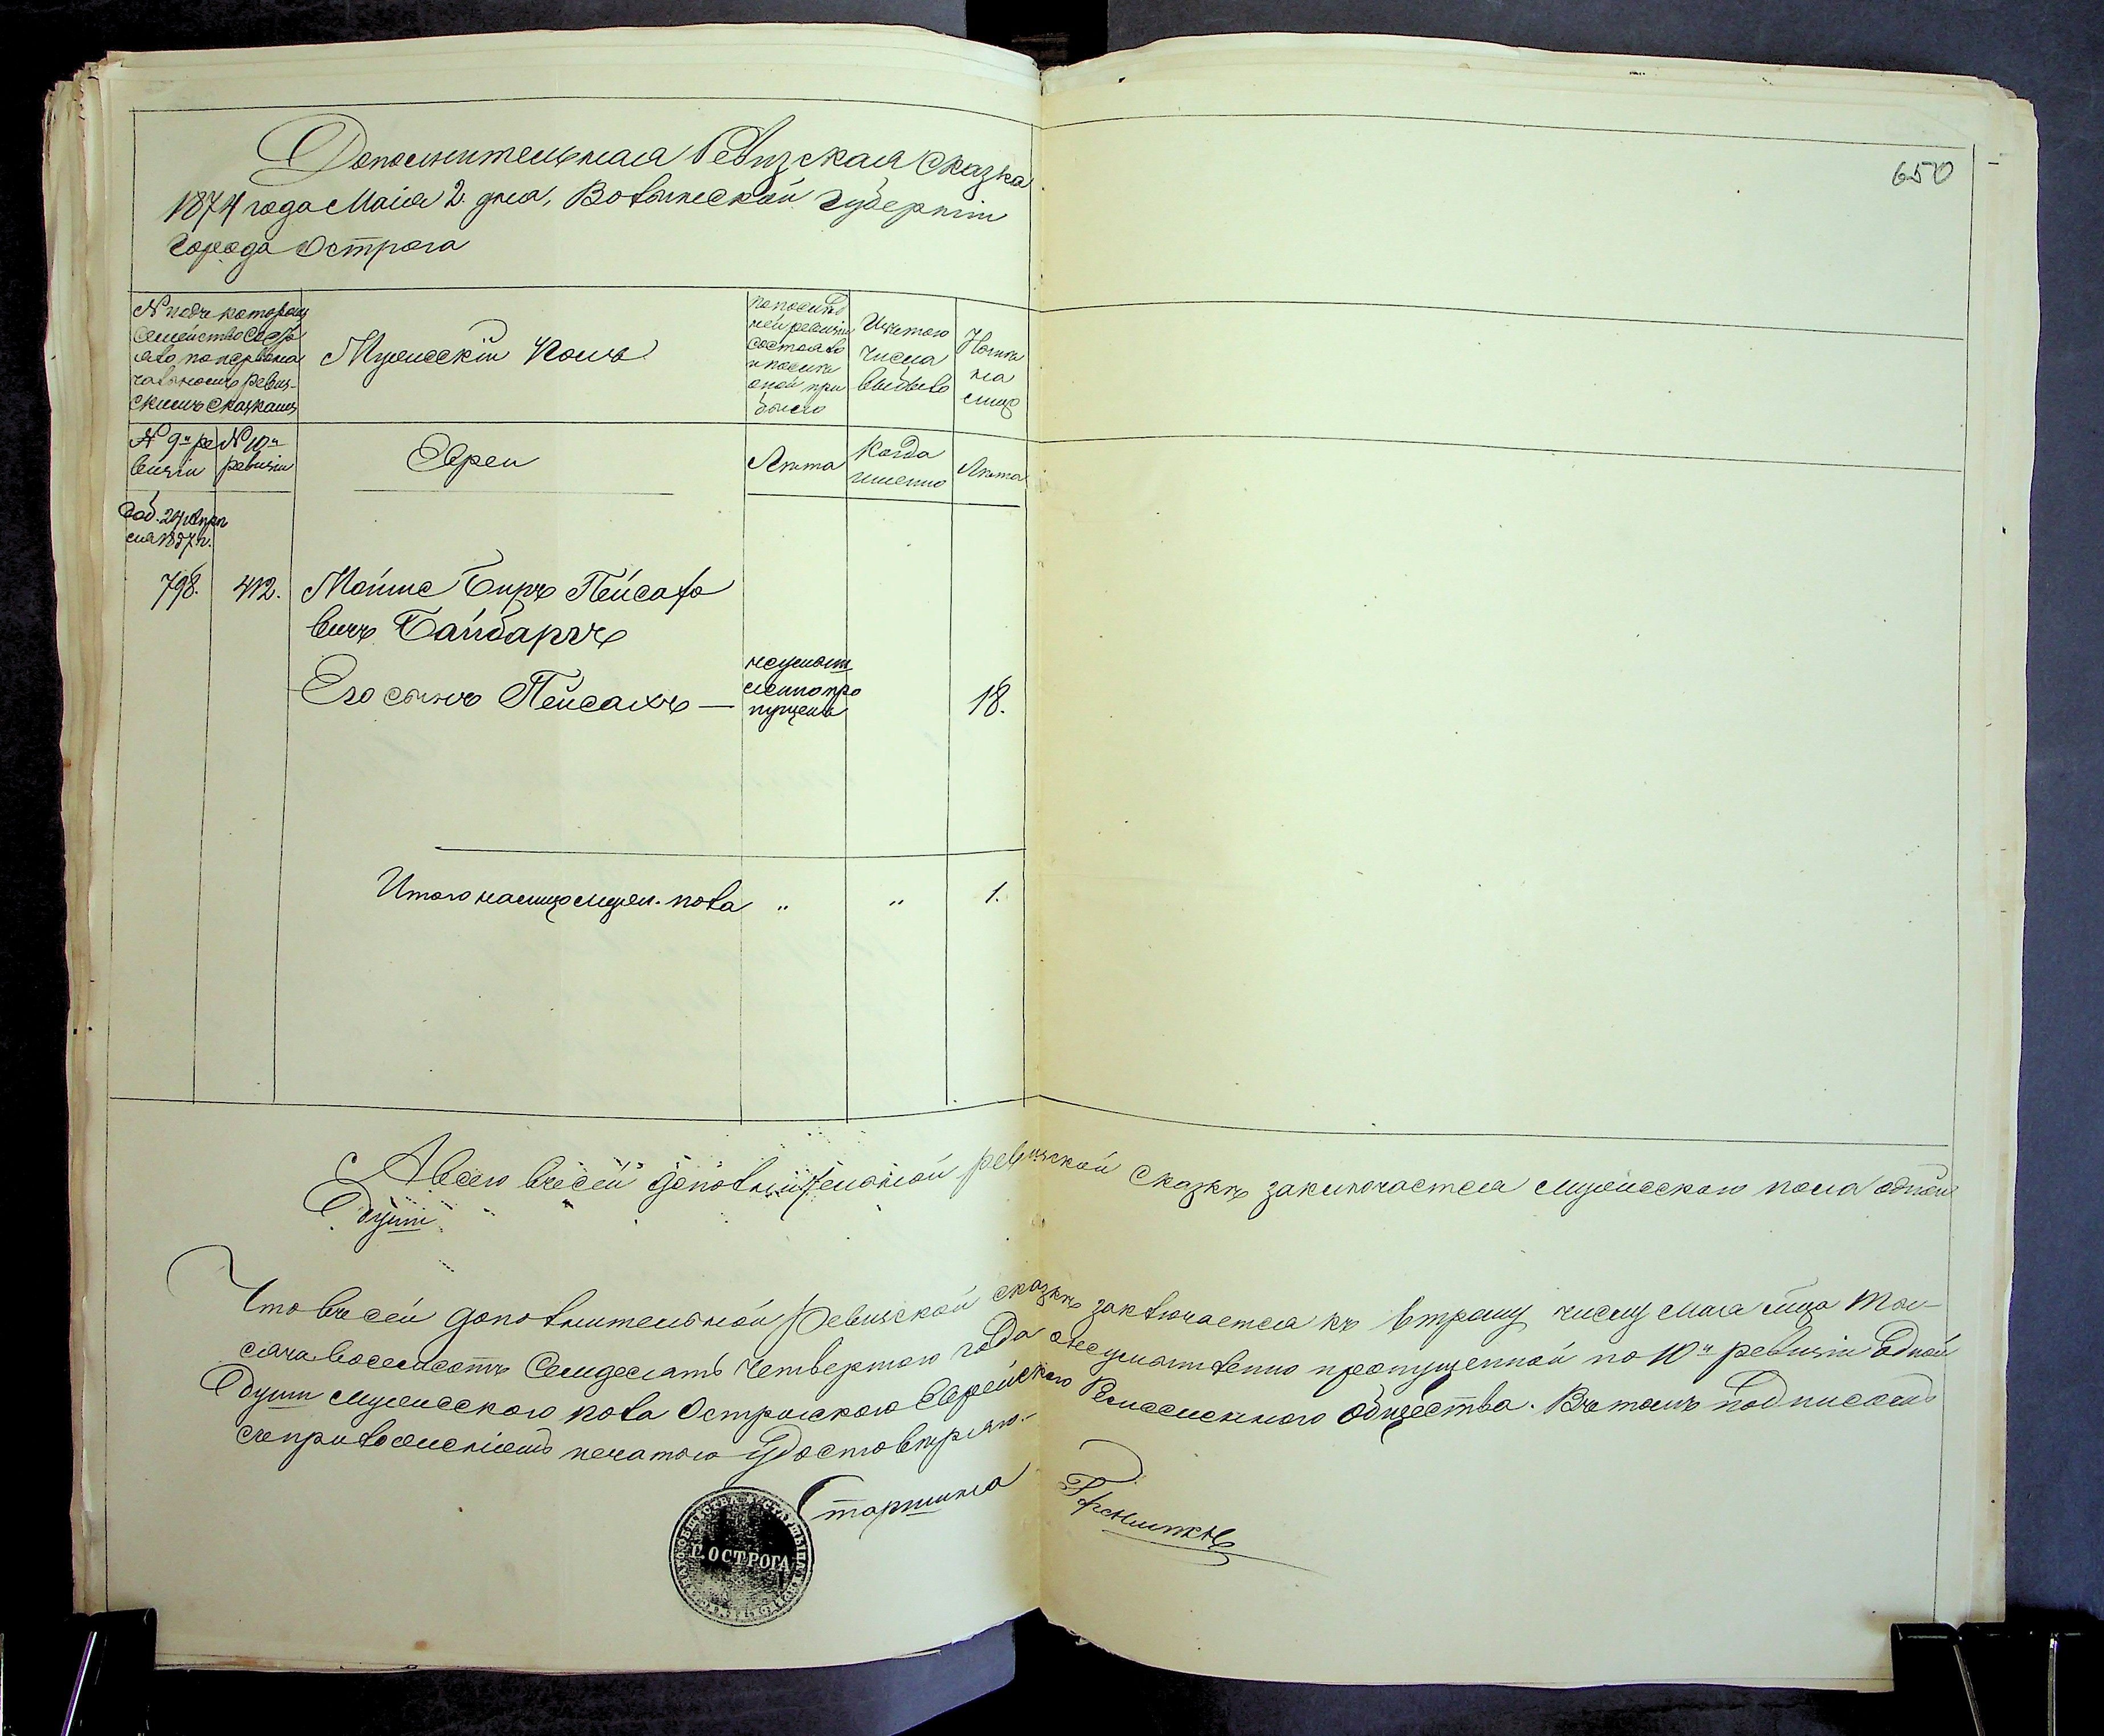 Дополнительная Ревизская Сказка
650
1874 года Маія 2 дня, Волынской губерніи
города Острога
№ подъ которымъ
семейство состо
яло по первона
чальнымъ ревиз-
скимъ сказкамъ
Мужескій полъ
по послѣд
ней ревизіи
состояло
и послѣ
оной при
было
Изъ того
числа
выбыло
Нынѣ
на
лицо
№ 9й ре
визіи
№ 10й
ревизіи
Евреи
Лѣта
Когда
именно
Лѣта
24 Апрѣ
ля 1857 г.
798.
412.
Мошко Беръ Пейсахо
вичъ Байбаръ
Его сынъ Пейсахъ —
неумыш
ленно про
пущенъ
18.
Итого налицо мужеск. пола
"
"
1.
А всего въ сей дополнительной ревизской сказкѣ заключается мужескаго пола одной
души
Что въ сей дополнительной Ревизской сказкѣ заключается къ второму числу мая мѣсяца Ты-
сяча восемьсотъ семьдесятъ четвертого года неумышленно пропущенной по 10й ревизіи одной
души мужескаго пола Острожскаго Еврейскаго Ремесленного общества. Въ томъ подписомъ
съ приложеніемъ печати удостовѣряю.-
Старшина
Г. ОСТРОГА